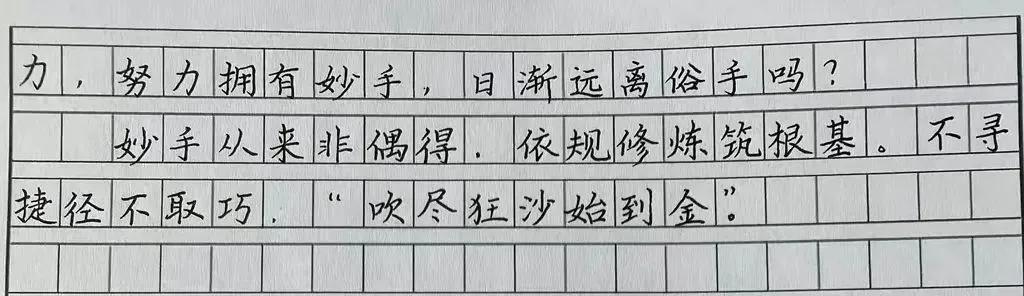 力，努力拥有妙手，日渐远离俗手吗？
妙手从来非偶得．依规修炼筑根基。不寻
捷径不取巧．“吹尽狂沙始到金”。